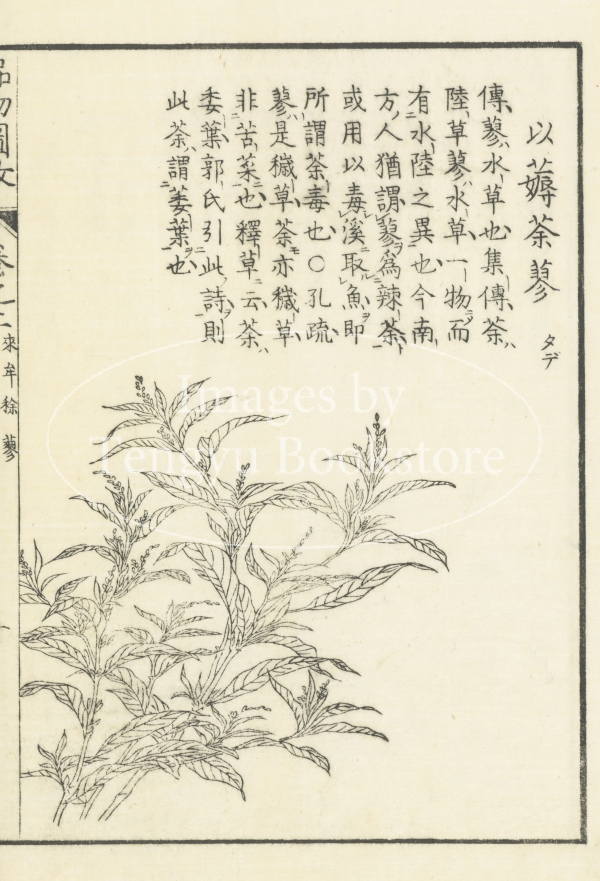 以薅荼蓼
タデ
傳、蓼、水草也集傳、荼、
陸草蓼、水草、一物而
有水陸之異也今南
方人猶謂蓼為辣荼
或用以毒溪取魚即
所謂荼毒也○孔疏
蓼是穢草荼亦穢草
非苦菜也釋草云荼
委葉郭氏引此詩則
此荼謂委葉也
品物圖攷
卷之二
來牟 稌 蓼
Images by
Tengyu Bookstore